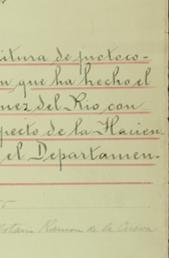 itura de protoco-
n que ha hecho el
nez del Rio con
pecto de la Hacien
el Departamen-
Notario Ramon de la Cueva